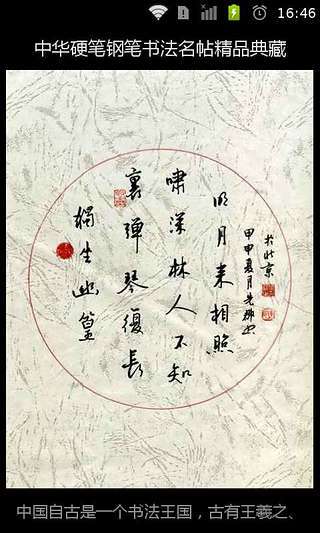 16:46
中华硬笔钢笔书法名帖精品典藏
獨坐幽篁
裏彈琴復長
嘯深林人不知
明月来相照
甲申夏月
於北京
中国自古是一个书法王国，古有王羲之、